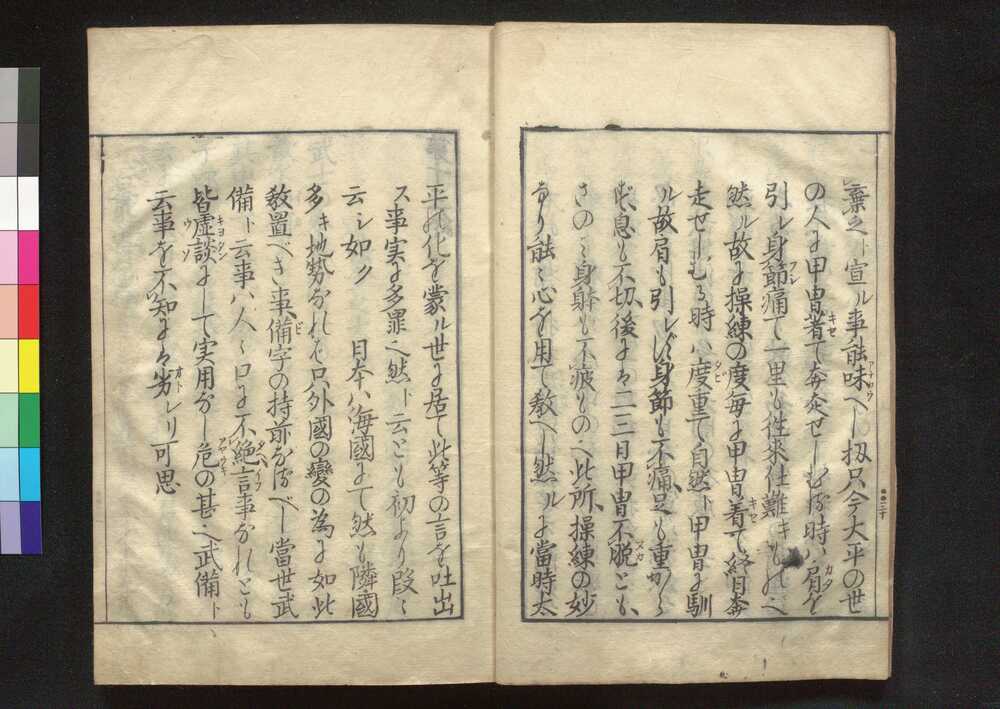 棄之ト宣ル事能味へし扨只今大平の世
の人に甲冑着て奔走せしむる時ハ肩を
引レ身節痛て一里も往来仕難キもの也
然ル故に操練の度毎に甲冑着て終日奔
走せしむる時ハ度重て自然ト甲冑に馴
ル故肩も引レず身節も不痛足も重からず
息も不切後にハ二三日甲冑不脱とも
さのミ身躬も不疲もの也此所操練の妙
なり能ミ心を用て教へし然ルに當時太
平の化を蒙ル世に居て此等の言を吐出
ス事実に多罪也然ト云とも初より段ミ
云シ如ク 日本ハ海國にて然も隣國
多キ地勢なれは只外國の變の為に如此
教置べき事備字の持前なるべし當世武
備ト云事ハ人ミ口に不絶言事なれとも
皆虚談にして実用なし危の甚也武備ト
云事を不知にハ劣レリ可思